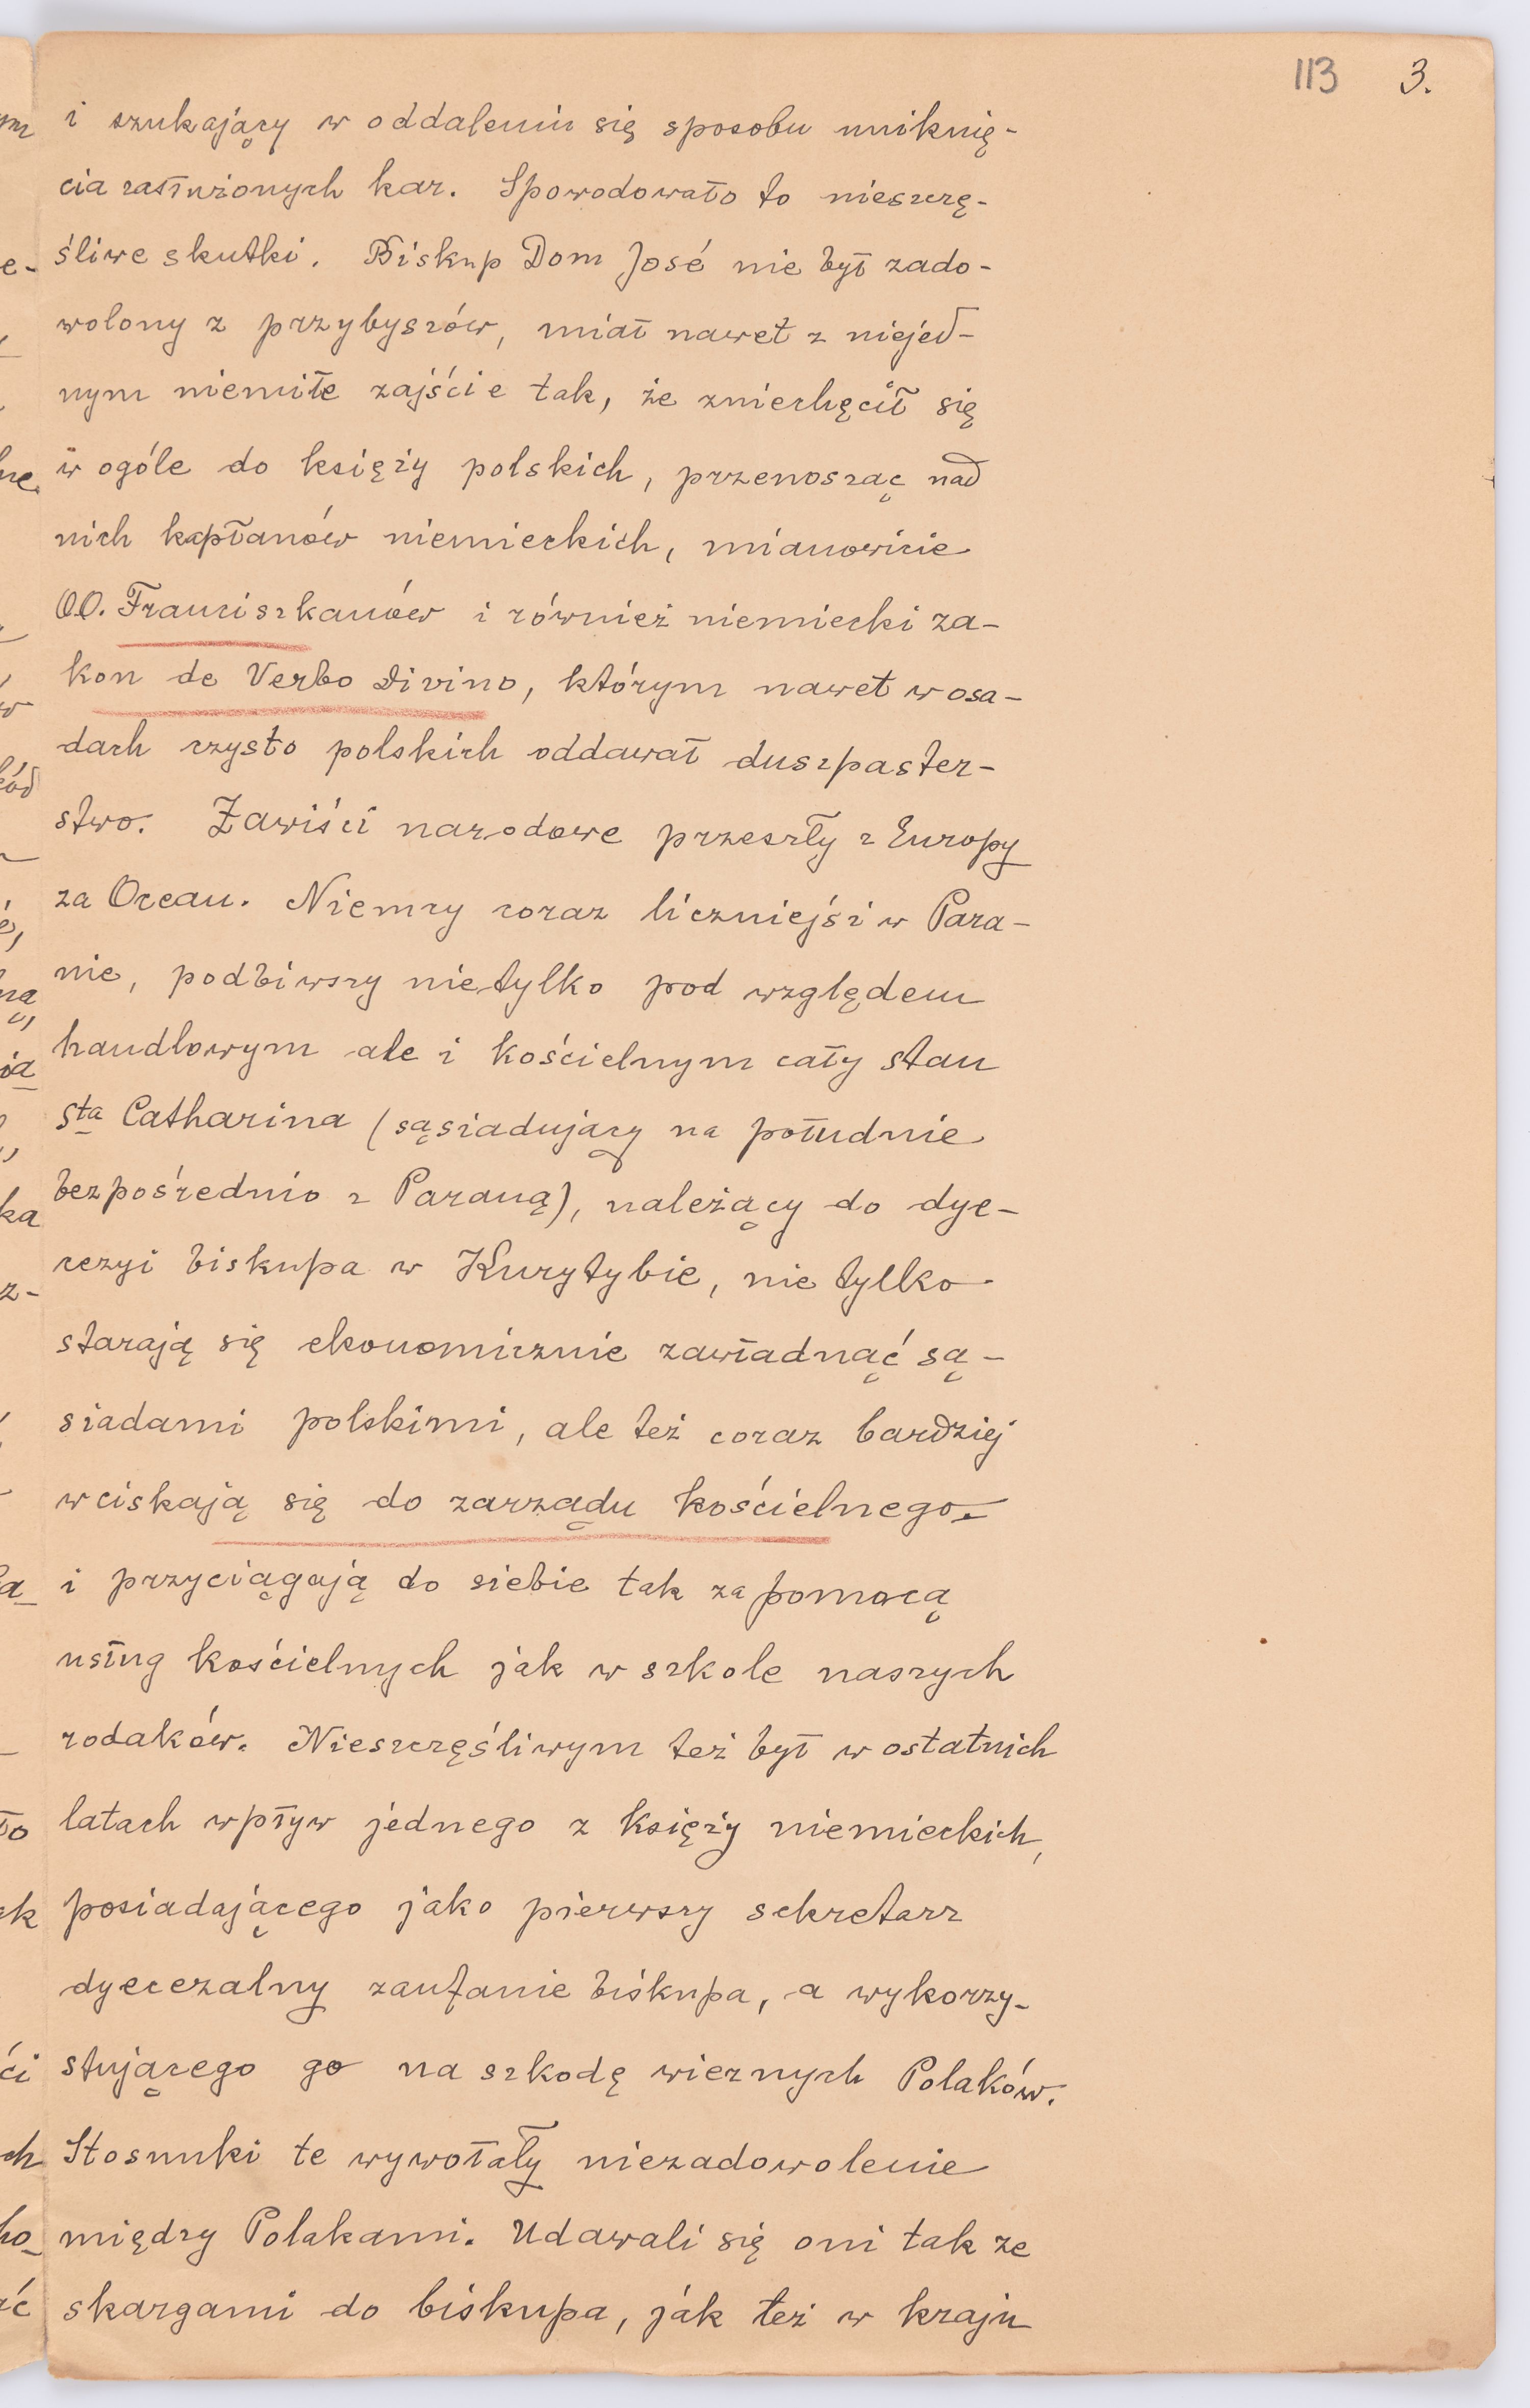 113 3.
i szukający w oddaleniu się sposobu uniknię-
cia zasłużonych kar. Spowodowało to nieszczę-
śliwe skutki. Biskup Dom José nie był zado-
wolony z przybyszów, miał nawet z niejed-
nym niemiłe zajście tak, że zniechęcił się
w ogóle do księży polskich, przenosząc nad
nich kapłanów niemieckich, mianowicie
OO. Franciszkanów i również niemiecki za-
kon de Verbo Divino, którym nawet w osa-
dach czysto polskich oddawał duszpaster-
stwo. Zawiści narodowe przeszły z Europy
za Ocean. Niemcy coraz liczniejsi w Para-
nie, podbiwszy nietylko pod względem
handlowym ale i kościelnym cały stan
Sta Catharina (sąsiadujący na południe
bezpośrednio z Paraną), należący do dye-
cezyi biskupa w Kurytybie, nie tylko
starają się ekonomicznie zawładnąć są-
siadami polskimi, ale też coraz bardziej
wciskają się do zarządu kościelnego
i przyciągają do siebie tak za pomocą
usług kościelnych jak w szkole naszych
rodaków. Nieszczęśliwym też był w ostatnich
latach wpływ jednego z księży niemieckich,
posiadającego jako pierwszy sekretarz
dyecezalny zaufanie biskupa, a wykorzy-
stującego go na szkodę wiernych Polaków.
Stosunki te wywołały niezadowolenie
między Polakami. Udawali się oni tak ze
skargami do biskupa, jak też w kraju